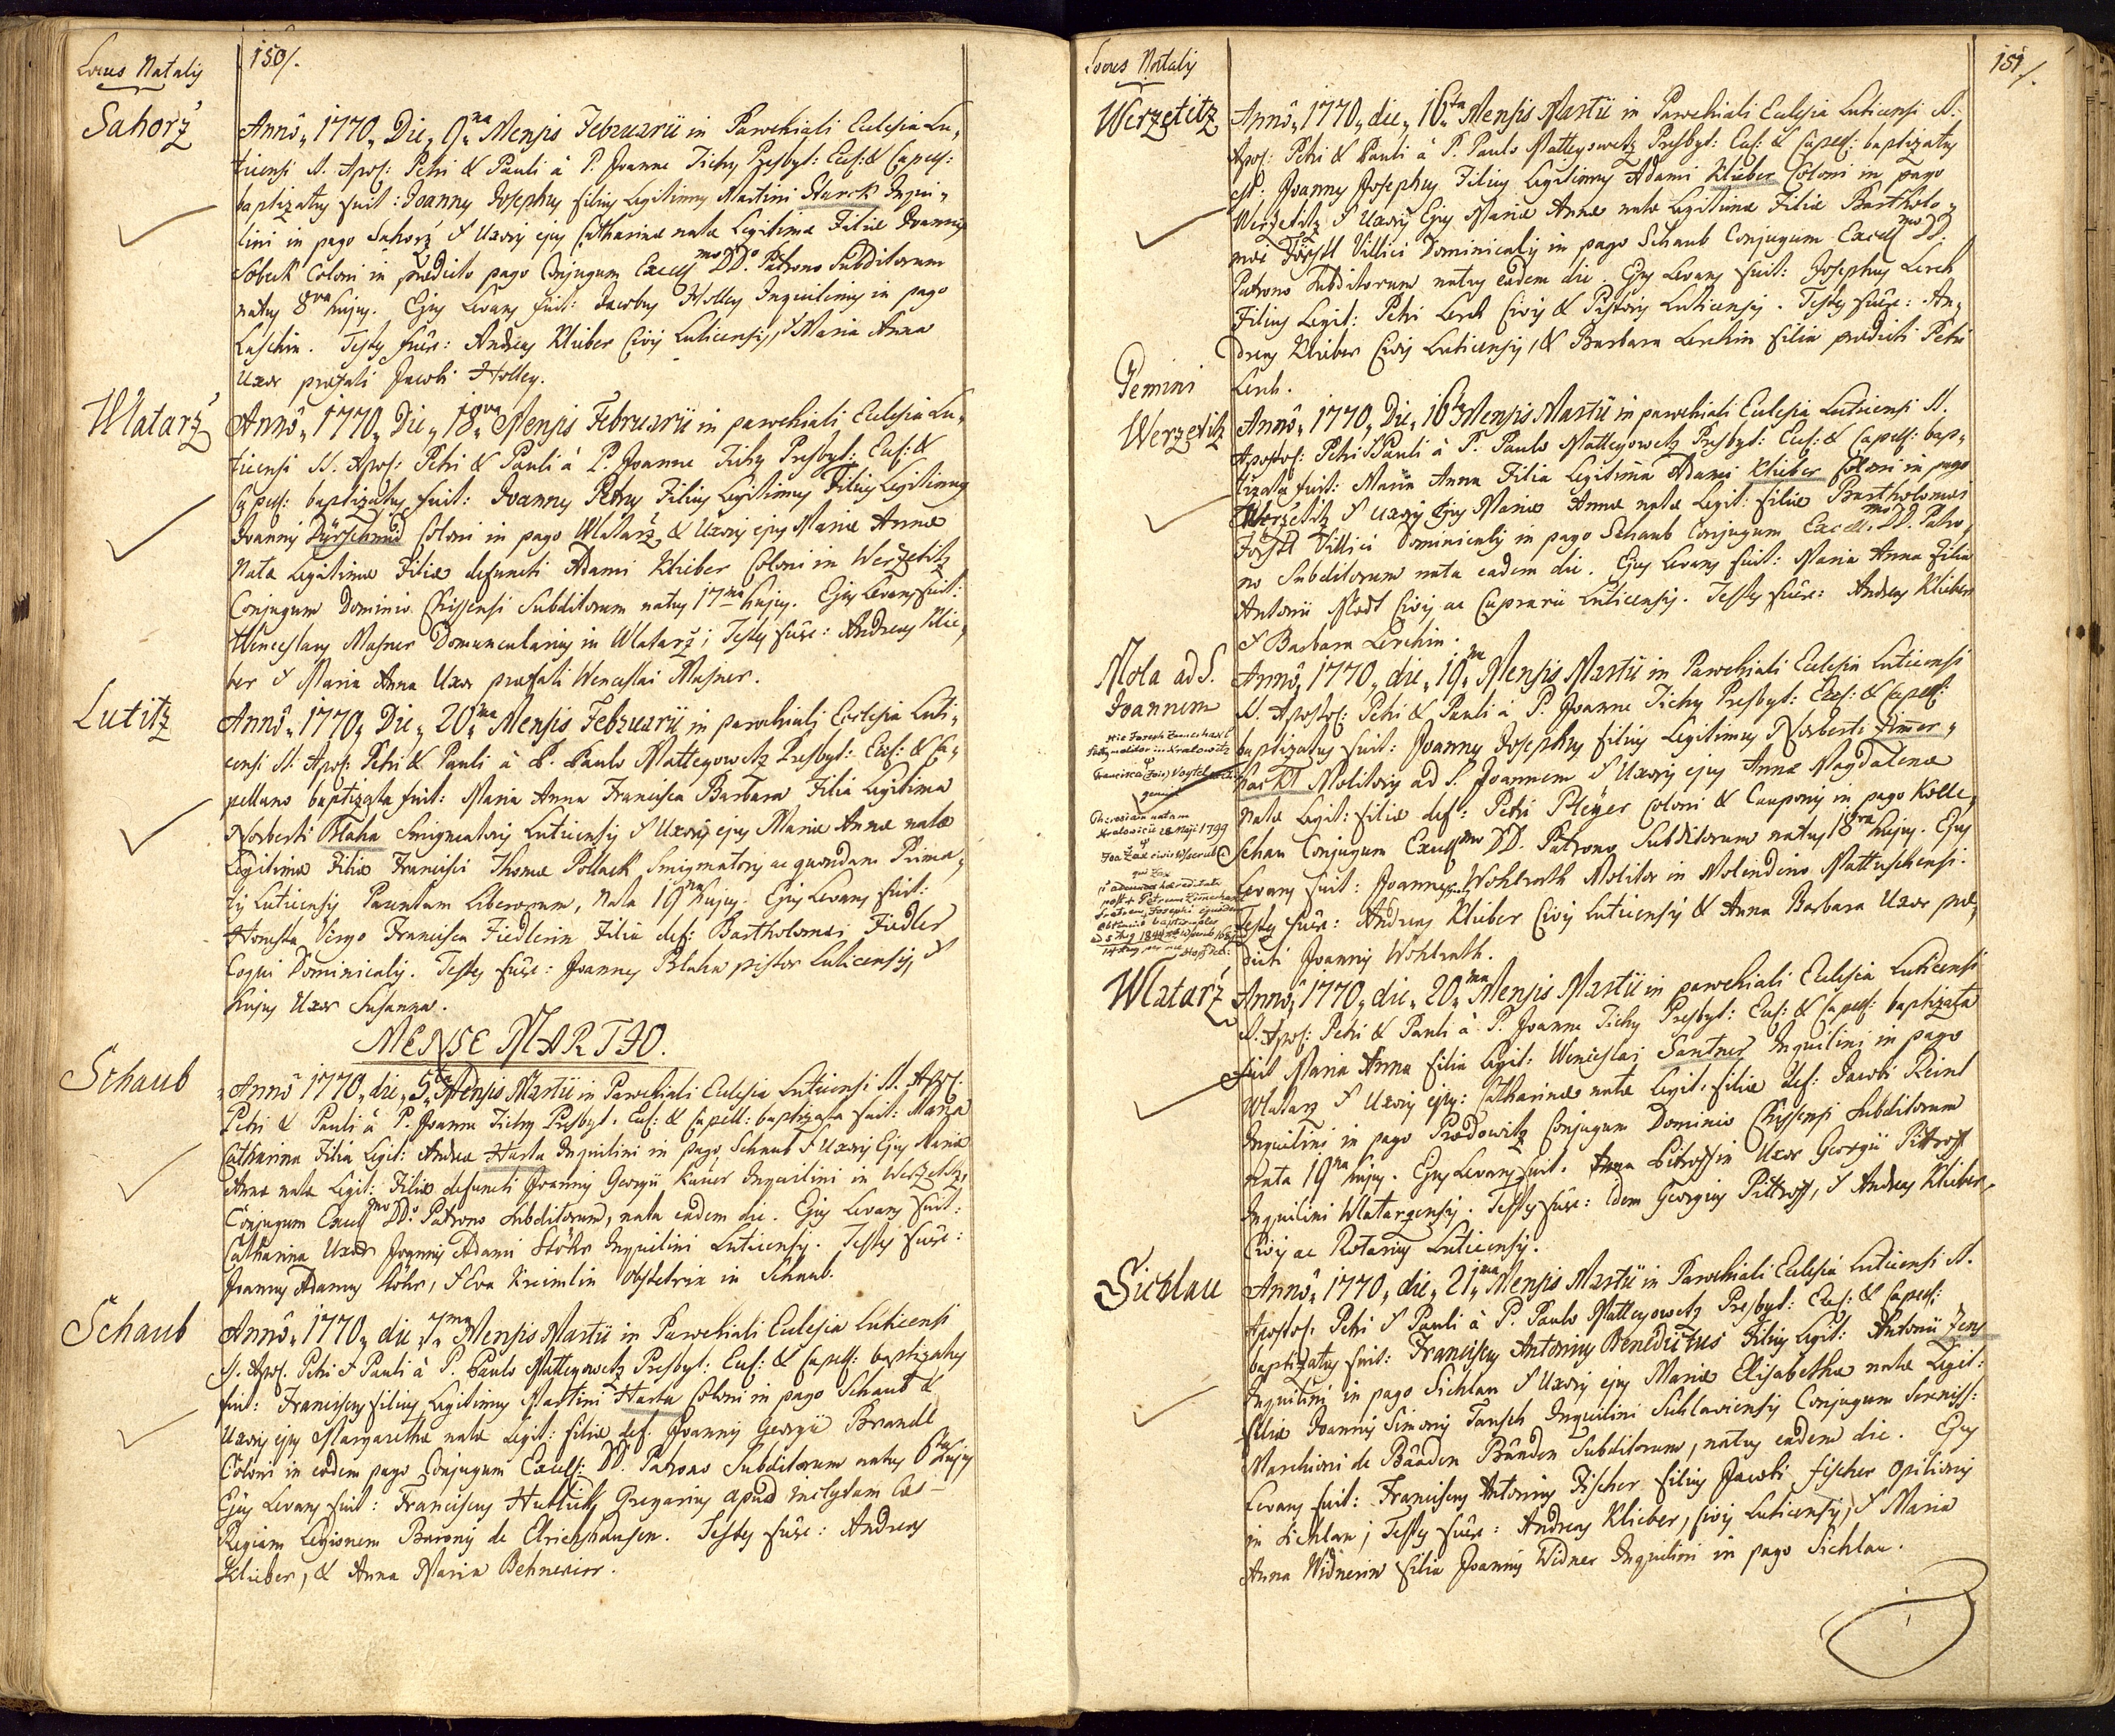 Locus Natalis
150/.
Sahorž
Annô „1770„ Die „9na„ Mensis Februarii in Parochiali Ecclesia Lu„
ticensi S. Apos: Petri & Pauli à P. Joanne Tichy Presbyt: Ecc: & Capell:
baptizatus fuit: Joannes Josephus filius Legitimus Martini Starck Inqui„
lini in pago Sahorž & Uxoris ejus Catharinæ natæ Legitimæ Filiæ Joannis
Sobeck Coloni in prædicto pago Conjugum Excellmo DDo. Patrono Subditorum
natus 8va hujus. Ejus Levans fuit: Jacobus Holley Inquilinus in pago
Luschin. Testes fuêre: Andreas Klieber Civis Luticensis, & Maria Anna
Uxor præfati Jacobi Holley.
Wlatarž
Annô „1770„ Die „18va„ Mensis Februarii in parochiali Ecclesia Lu„
ticensi SS. Apos: Petri & Pauli à P. Joanne Tichy Presbyt: Ecc: &
Capell: baptizatus fuit: Joannes Petrus Filius Legitimus Filius Legitimus
Joannis Dürschmid Coloni in pago Wlatarž & Uxoris ejus Mariæ Annæ
Natæ Legitimæ Filiæ defuncti Adami Klieber Coloni in Werzetitz
Conjugum Dominio Chissensi Subditorum natus 17ma hujus. Ejus Levans fuit:
Wenceslaus Masner Domuncularius in Wlatarž; Testes fuêre: Andreas Klie„
ber & Maria Anna Uxor præfati Wenceslai Masner.
Lutitz
Annô „1770„ Die „20ma„ Mensis Februarii in parochiali Ecclesia Luti„
censi SS. Apos: Petri & Pauli à P. Paulo Matteyowetz Presbyt: Eccl: & Ca„
pellano baptizata fuit: Maria Anna Francisca Barbara Filia Legitima
Norberti Blaha Smigmatoris Luticensis & Uxoris ejus Mariæ Annæ natæ
Legitimæ Filiæ Francisci Thomæ Pollack Smigmatoris ac quondam Prima„
tis Luticensis Parentum Liberorum, nata 19na hujus. Ejus Levans fuit:
Honesta Virgo Francisca Fiedlerin Filia def: Bartholomæi Fiedler
Coqui Dominicalis. Testes fuêre: Joannes Blaha pistor Luticensis, &
hujus Uxor Susanna.
MENSE MARTIO.
Schaub
Annô 1770„ die „5ta„ Mensis Martii in Parochiali Ecclesia Luticensi SS. Apos:
Petri & Pauli à P. Joanne Tichy Presbyt: Ecc: & Capell: baptizata fuit: Maria
Catharina Filia Legit: Andreæ Harta Inquilini in pago Schaub & Uxoris Ejus Mariæ
Annæ natæ Legit: Filiæ defuncti Joannis Georgii Kauer Inquilini in Werzetitz,
Conjugum Excellmo DDo. Patrono Subditorum, nata eadem die. Ejus Levans fuit:
Catharina Uxor Joannis Adami Stöhr Inquilini Luticensis. Testes fuêre:
Joannes Adamus Stöhr, & Eva Kreimlin Obstetrix in Schaub.
Schaub
Annô „1770„ die „7ma„ Mensis Martii in Parochiali Ecclesia Luticensi
SS. Apos. Petri & Pauli à P. Paulo Matteyowetz Presbyt: Ecc: & Capell: baptizatus
fuit: Franciscus filius Legitimus Martini Harta Coloni in pago Schaub &
Uxoris ejus Margarethæ natæ Legit: filiæ def. Joannis Georgii Brandl
Coloni in eodem pago Conjugum Excell: DD. Patrono Subditorum natus 6ta hujus
Ejus Levans fuit: Franciscus Gregarius apud inclytam Cæs-
Regiam Legionem Baronis de Elrichshausen. Testes fuêre: Andreas
Klieber, & Anna Maria
Locus Natalis
151/.
Werzetitz
Annô „1770„ die „16ta Mensis Martii in Parochiali Ecclesia Luticensi SS:
Apos: Petri & Pauli à P. Paulo Matteyowetz Presbyt: Ecc: & Capell: baptizatus
est: Joannes Josephus Filius Legitimus Adami Klieber Coloni in pago
Werzetitz & Uxoris Ejus Mariæ Annæ natæ Legitimæ Filiæ Bartholo„
mæi Förstl Villici Dominicalis in pago Schaub Conjugum Excellmo DD.
Patrono Subditorum natus eadem die Ejus Levans fuit: Josephus Lerch
Filius Legit: Petri Lerch Civis & Pistoris Luticensis. Testes fuêre: An„
dreas Klieber Civis Luticensis, & Barbara Lerchin filia prædicti Petri
Lerch.
Gemini
Werzetitz
Annô „1770„ Die „16ta Mensis Martii in parochiali Ecclesia Luticensi SS.
Apostol: Petri & Pauli à P. Paulo Matteyowetz Presbyt: Ecc: & Capell: bap„
tizata fuit: Maria Anna Filia Legitima Adami Klieber Coloni in pago
Werzetitz & Uxoris Ejus Mariæ Annæ natæ Legit: filiæ Bartholomæi
Förstl Villici Dominicalis in pago Schaub Conjugum Excell.mo DD. Patro„
no Subditorum nata eadem die. Ejus Levans fuit: Maria Anna Filia
Antonii Civis ac Luticensis. Testes fuêre: Andreas Klieber
& Barbara Lerchin.
Mola ad S.
Joannem
Annô „1770„ die „19na„ Mensis Martii in Parochiali Ecclesia Luticensi
SS. Apostol: Petri & Pauli à P. Joanne Tichy Presbyt: Eccl: & Capell:
baptizatus fuit: Joannes Josephus filius Legitimus Norberti Zimer„
hackl Molitoris ad S. Joannem & Uxoris ejus Annæ Magdalenæ
natæ Legit: filiæ def: Petri Pleyer Coloni & Cauponis in pago Kolle„
schau Conjugum Excellmo DD. Patrono Subditorum natus 18va hujus. Ejus
Levans fuit: Joannes Wohlrath Molitor in Molendino Mattuschensi.
Testes fuêre: Andreas Klieber Civis Luticensis & Anna Barbara Uxor præ„
dicti Joannis Wohlrath.
Hic Joseph Zimerhackl
molitor in Kralowitz
Francisca
genuit
Theresiam natam
Kralowicii 28 Maji 1799
Wlatarž
Annô „1770„ die „20ma„ Mensis Martii in parochiali Ecclesia Luticensi
SS. Apos: Petri & Pauli à P. Joanne Tichy Presbyt: Ecc: & Capell: baptizata
fuit Maria Anna filia Legit: Wenceslai Santner Inquilini in pago
Wlatarz & Uxoris ejus: Catharinæ natæ Legit: filiæ def: Jacobi Reinl
Inquilini in pago Prodowitz Conjugum Dominio Chissensi Subditorum
nata 19na hujus. Ejus Levans fuit. Anna Pitroffin Uxor Georgii Pittroff
Inquilini Wlatarzensis. Testes fuêre: idem Georgius Pittroff, & Andreas Klieber
Civis ac Rotarius Luticensis.
Sichlau
Annô „1770„ die „21ma„ Mensis Martii in Parochiali Ecclesia Luticensi SS.
Apostol: Petri & Pauli à P. Paulo Matteyowetz Presbyt: Ecc: & Capell:
baptizatus fuit: Franciscus Antonius Benedictus Filius Legit: Antonii Zens
Inquilini in pago Sichlau & Uxoris ejus Mariæ Elisabethæ natæ Legit:
filiæ Joannis Simonis Tausch Inquilini Sichlaviensis Conjugum Sereniss:
Marchioni de Baaden Baaden Subditorum, natus eadem die. Ejus
Levans fuit: Franciscus Antonius Fischer filius Jacobi fischer Opilionis
in Sichlau; Testes fuêre: Andreas Klieber, Civis Luticensis, & Maria
Anna Widnerin filia Joannis Widner Inquilini in pago Sichlau.